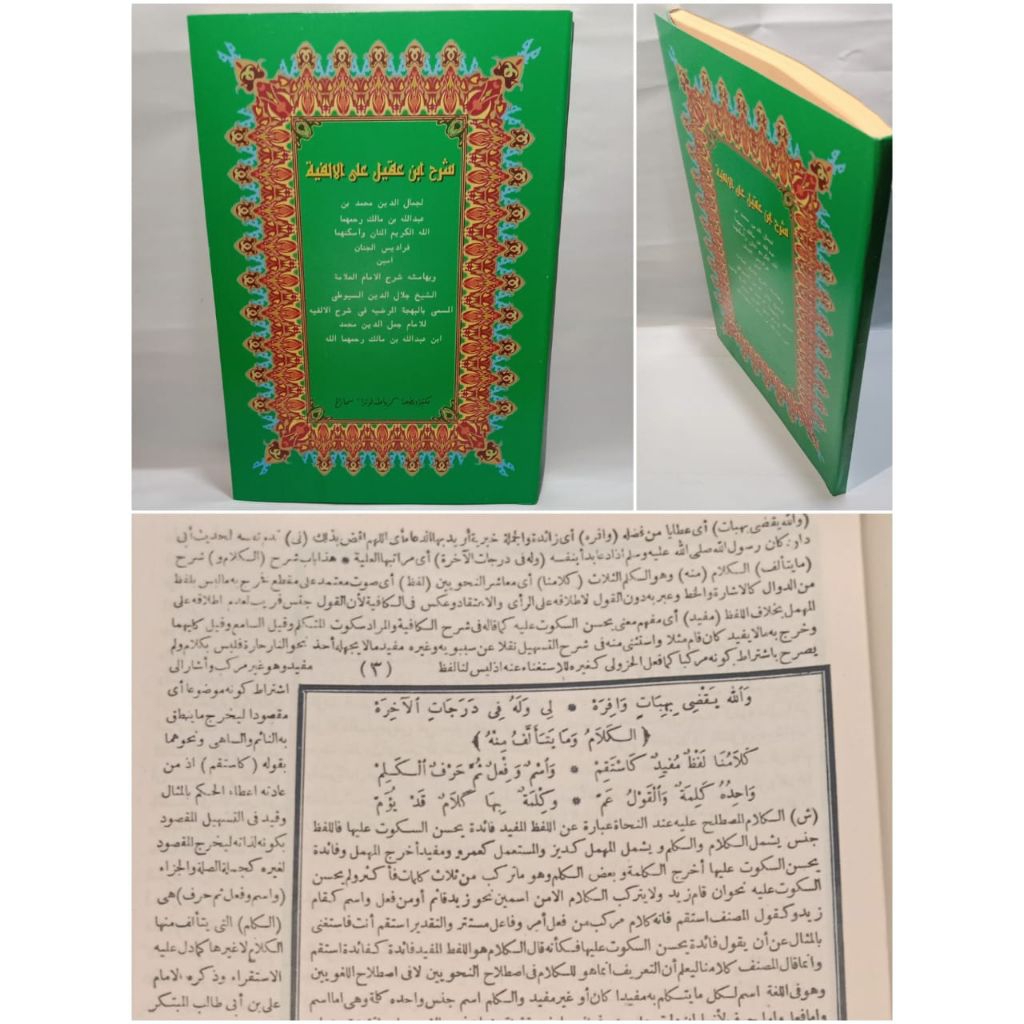 شرح ابن عقيل على الالفية
لجمال الدين محمد بن
عبدالله بن مالك رحمهما
الله الكريم المنان واسكنهما
فراديس الجنان
امين
وبهامشه شرح الامام العلامة
الشيخ جلال الدين السيوطى
المسمى بالبهجة المرضيه فى شرح الالفيه
للامام جمل الدين محمد
ابن عبدالله بن مالك رحمهما الله
شرح ابن عقيل على الالفية
(والله يقضى بهبات) أى عطايا من فضله (وافره) أى زائدة والجملة خبرية أريد بها الدعاء أى اللهم اقض بذلك (لى) قدم نفسه لحديث أبى
داود كان رسول الله صلى الله عليه وسلم اذا دعا بدأ بنفسه (وله فى درجات الآخرة) أى مراتبها العلية * هذا باب شرح (الكلام و) شرح
(ما يتألف) الكلام (منه) وهو الكلم الثلاث (كلامنا) أى معاشر النحويين (لفظ) أى صوت معتمد على مقطع فخرج به ما ليس بلفظ
من الدوال كالاشارة والخط وعبر به دون القول لاطلاقه على الرأى والاعتقاد وعكس فى الكافية لأن القول جنس قريب لعدم اطلاقه على
المهمل بخلاف اللفظ (مفيد) أى مفهم معنى يحسن السكوت عليه كما قاله فى شرح الكافية والمراد سكوت المتكلم وقيل السامع وقيل كليهما
وخرج به ما لا يفيد كان قام مثلا واستثنى منه فى شرح التسهيل نقلا عن سيبويه وغيره مفيد ما لا يجهله أحد نحو النار حارة فليس بكلام ولم
يصرح باشتراط كونه مركبا كما فعل الجزولى كغيره للاستغناء عنه اذ ليس لنا لفظ (٣) مفيد وهو غير مركب وأشار الى
اشتراط كونه موضوعا أى
مقصودا ليخرج ما ينطق
به النائم والساهى ونحوهما
بقوله (كاستقم) اذ من
عادته اعطاء الحكم بالمثال
وقيد فى التسهيل المقصود
بكونه لذاته ليخرج المقصود
لغيره كجملة الصلة والجزاء
(واسم وفعل ثم حرف) هى
(الكلم) التى يتألف منها
الكلام لا غيرها كما دل عليه
الاستقراء وذكره الامام
على بن أبى طالب المبتكر
وَاللهُ يَقْضِى بِهِبَاتٍ وَافِرَهْ * لِى وَلَهُ فِى دَرَجَاتِ الْآخِرَهْ
﴿ الْكَلَامُ وَمَا يَتَأَلَّفُ مِنْهُ ﴾
كَلَامُنَا لَفْظٌ مُفِيدٌ كَاسْتَقِمْ * وَاسْمٌ وَفِعْلٌ ثُمَّ حَرْفٌ الْكَلِمْ
وَاحِدُهُ كَلِمَةٌ وَالْقَوْلُ عَمْ * وَكِلْمَةٌ بِهَا كَلَامٌ قَدْ يُؤَمْ
(ش) الكلام المصطلح عليه عند النحاة عبارة عن اللفظ المفيد فائدة يحسن السكوت عليها فاللفظ
جنس يشمل الكلام والكلم ويشمل المهمل كديز والمستعمل كعمرو ومفيد أخرج المهمل وفائدة
يحسن السكوت عليها أخرج الكلمة وبعض الكلم وهو ما تركب من ثلاث كلمات فأكثر ولم يحسن
السكوت عليه نحو ان قام زيد ولا يتركب الكلام الا من اسمين نحو زيد قائم أو من فعل واسم كقام
زيد وكقول المصنف استقم فانه كلام مركب من فعل أمر وفاعل مستتر والتقدير استقم أنت فاستغنى
بالمثال عن أن يقول فائدة يحسن السكوت عليها فكأنه قال الكلام هو اللفظ المفيد فائدة كفائدة استقم
وانما قال المصنف كلامنا ليعلم أن التعريف انما هو للكلام فى اصطلاح النحويين لا فى اصطلاح اللغويين
وهو فى اللغة اسم لكل ما يتكلم به مفيدا كان أو غير مفيد والكلم اسم جنس واحده كلمة وهى اما اسم